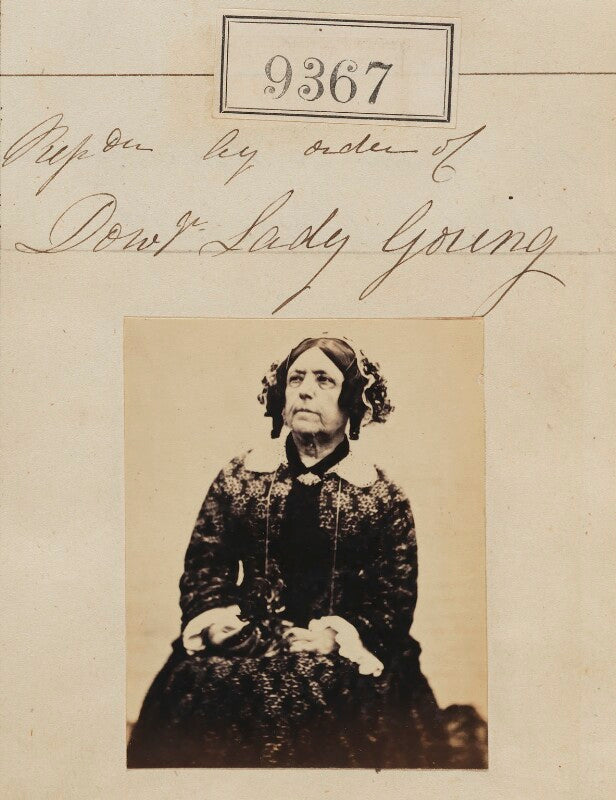 9367
Repdn by order of
Dowr Lady Goring